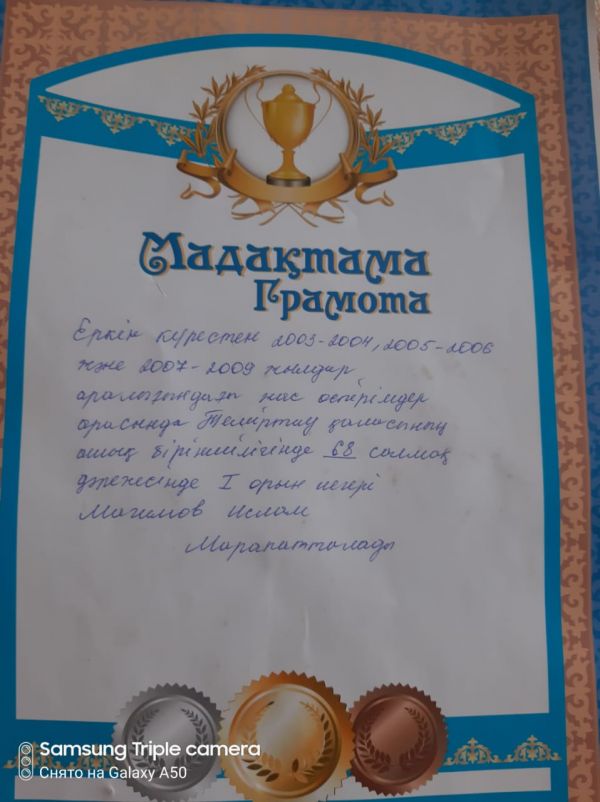 Мадақтама
Грамота
Еркін күрестен 2003-2004, 2005-2006
және 2007-2009 жылдар
аралығындағы жас өспірімдер
арасында Теміртау қаласының
ашық біріншілігінде 68 салмақ
дәрежесінде I орын иегері
Магимов Ислам
Марапатталады
Samsung Triple camera
Снято на Galaxy A50